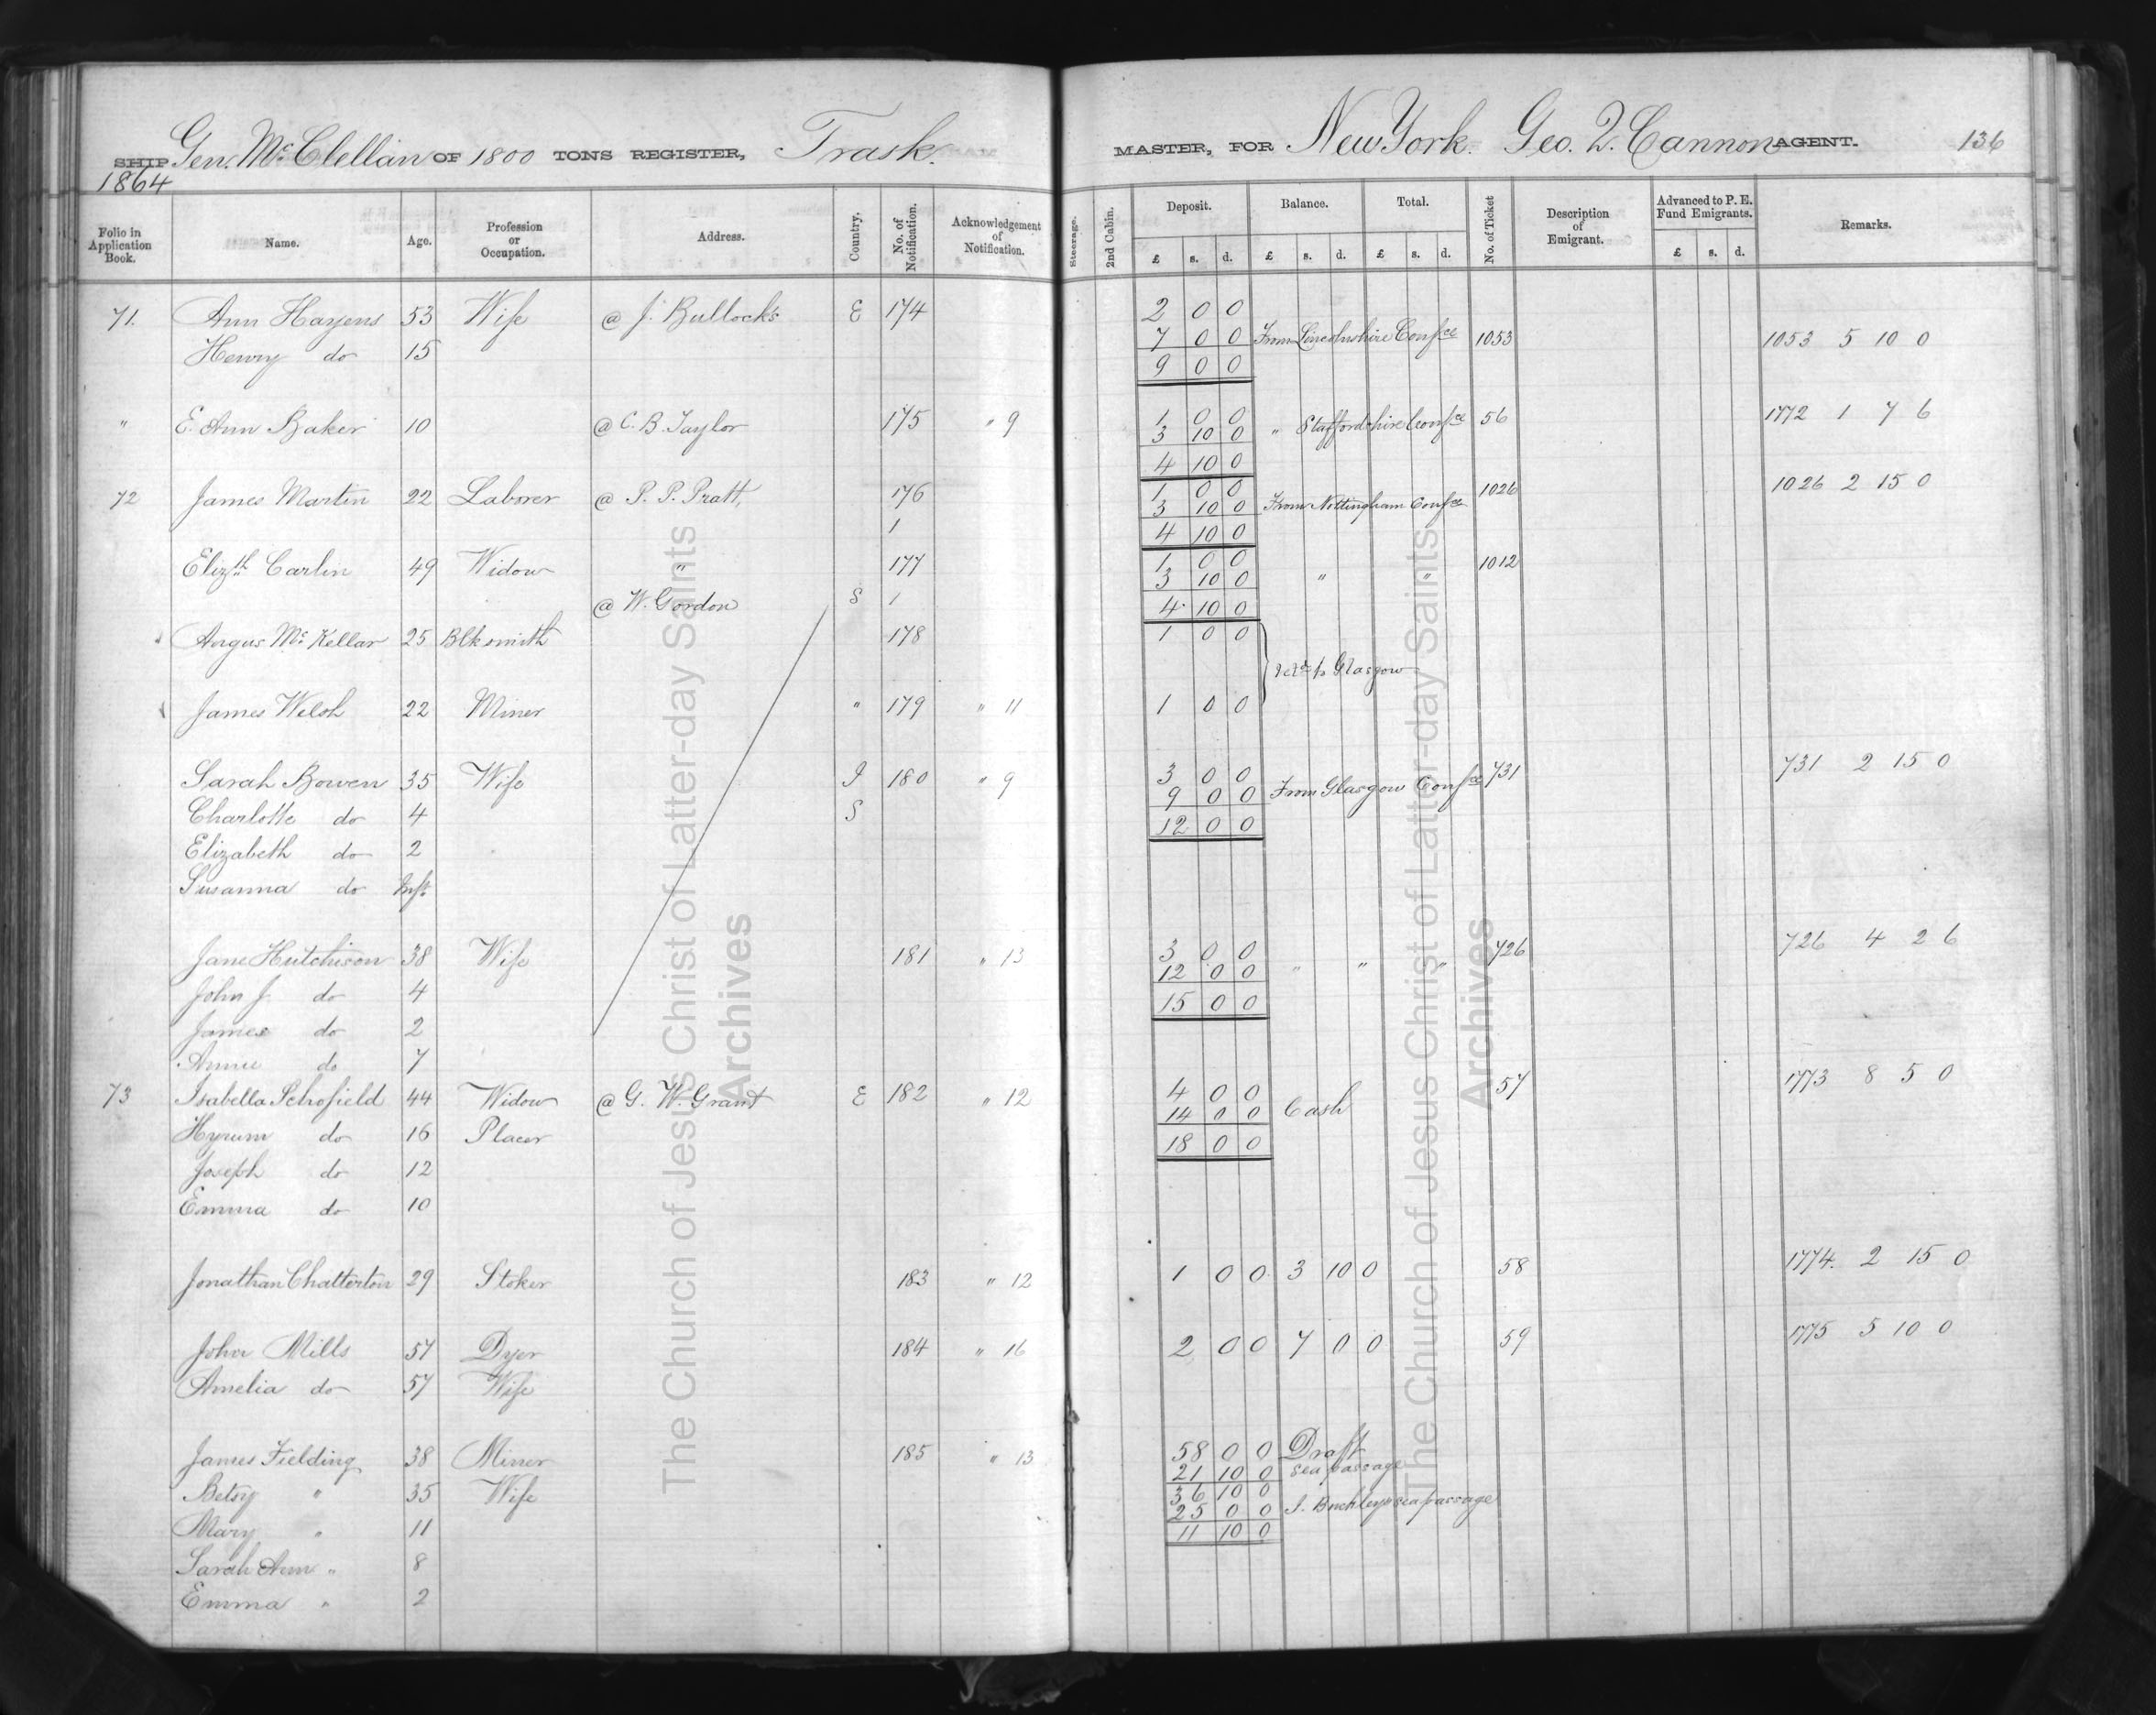 SHIP Gen. McClellan OF 1800 TONS REGISTER, Trask. MASTER, FOR New York. Geo. Q. Cannon AGENT. 136
1864
Folio in Application Book. Name. Age. Profession or Occupation. Address. Country. No. of Notification. Acknowledgement of Notification. Steerage. 2nd Cabin. Deposit. £ s. d. Balance. £ s. d. Total. £ s. d. No. of Ticket Description of Emigrant. Advanced to P. E. Fund Emigrants. £ s. d. Remarks.
71. Ann Hayens 53 Wife @ J. Bullock's E 174 2 0 0
Henry do 15 7 0 0 From Lincolnshire Confce 1053 1053 5 10 0
9 0 0
" E. Ann Baker 10 @ C. B. Taylor 175 " 9 1 0 0
3 10 0 " Staffordshire Confce 56 1772 1 7 6
4 10 0
72 James Martin 22 Laborer @ P. P. Pratt, 176 1 0 0
1 3 10 0 From Nottingham Confce 1026 1026 2 15 0
4 10 0
Elizth Carlin 49 Widow " 177 1 0 0
3 10 0 " " 1012
@ W. Gordon S 1 4 10 0
Angus McKellar 25 Blksmith 178 1 0 0
retd to Glasgow
James Welsh 22 Miner " 179 " 11 1 0 0
Sarah Bowen 35 Wife I 180 " 9 3 0 0
9 0 0 From Glasgow Confce 731 731 2 15 0
Charlotte do 4 S 12 0 0
Elizabeth do 2
Susanna do Inft
Jane Hutchison 38 Wife 181 " 13 3 0 0
12 0 0 " " " 726 726 4 2 6
John J. do 4 15 0 0
James do 2
Annie do 7
73 Isabella Schofield 44 Widow @ G. W. Grant E 182 " 12 4 0 0
14 0 0 Cash 57 1773 8 5 0
Hyrum do 16 Placer 18 0 0
Joseph do 12
Emma do 10
Jonathan Chatterton 29 Stoker 183 " 12 1 0 0 3 10 0 58 1774. 2 15 0
John Mills 57 Dyer 184 " 16 2 0 0 7 0 0 59 1775 5 10 0
Amelia do 57 Wife
James Fielding 38 Miner 185 " 13 58 0 0 Draft
21 10 0 sea passage
Betsy " 35 Wife 36 10 0
25 0 0 J. Buckleys sea passage
Mary " 11 11 10 0
Sarah Ann " 8
Emma " 2
The Church of Jesus Christ of Latter-day Saints
Archives
The Church of Jesus Christ of Latter-day Saints
Archives